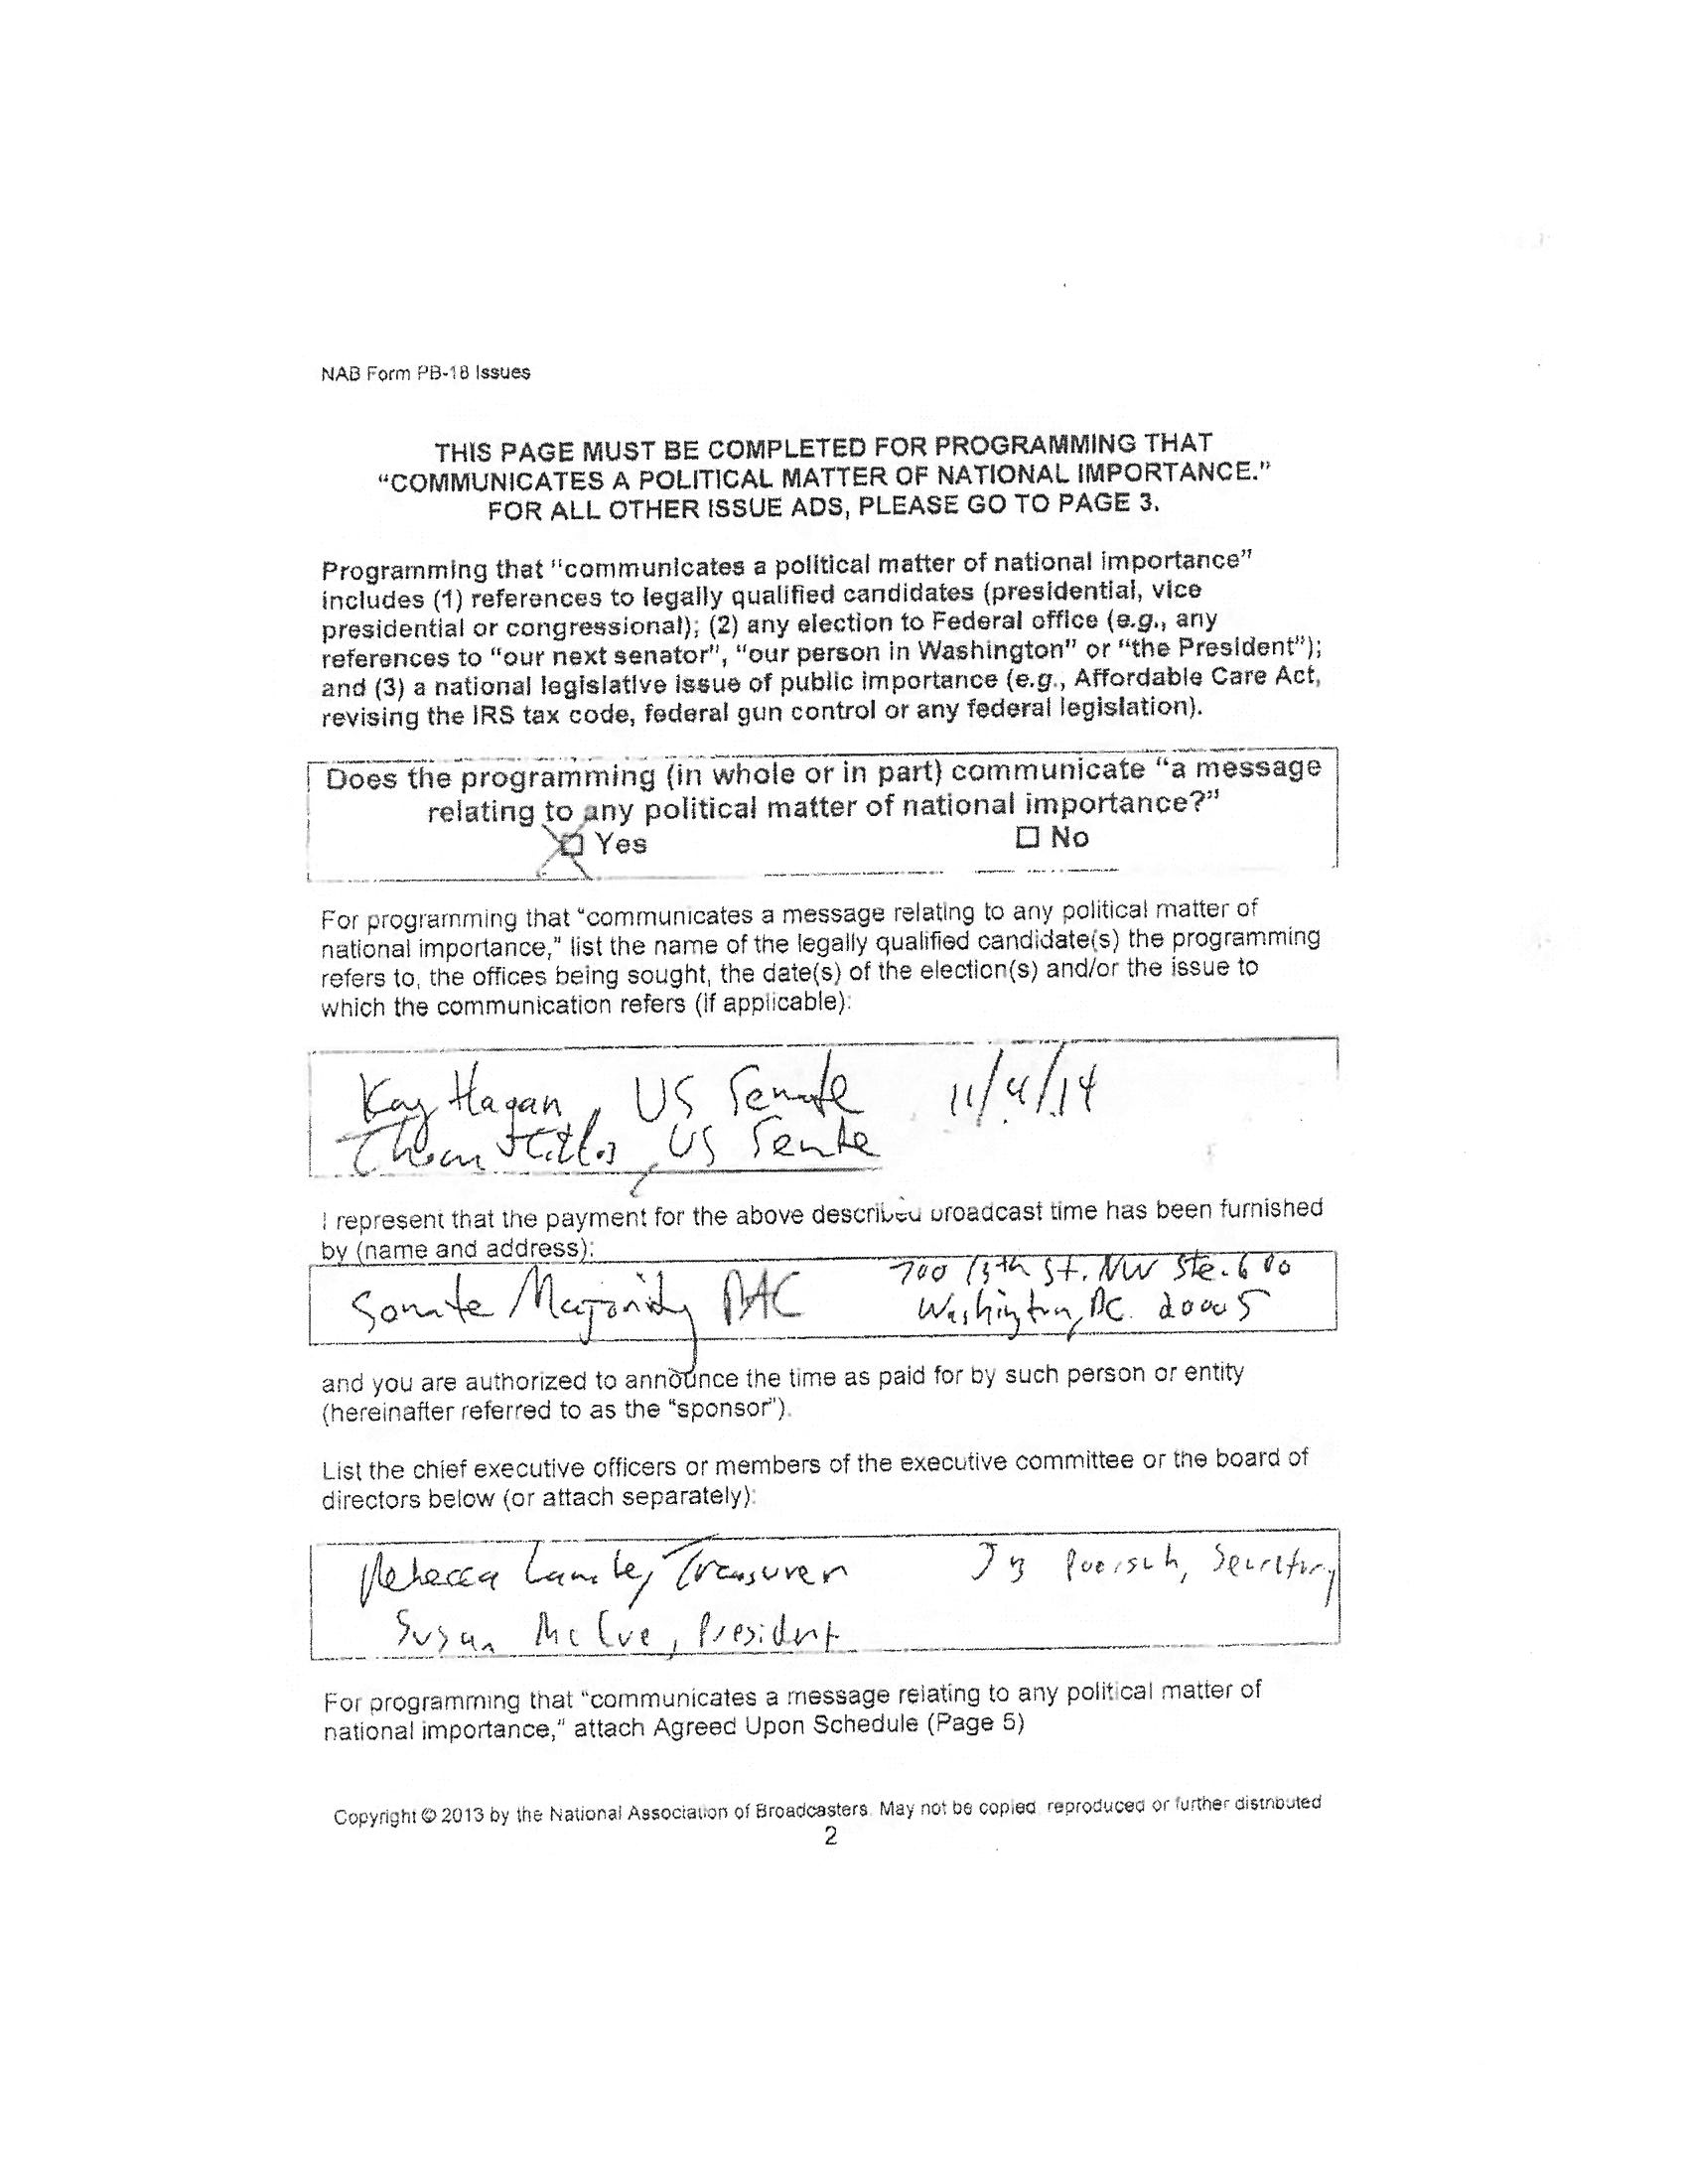 NAB Form PB-18 Issues
THIS PAGE MUST BE COMPLETED FOR PROGRAMMING THAT
“COMMUNICATES A POLITICAL MATTER OF NATIONAL IMPORTANCE.”
FOR ALL OTHER ISSUE ADS, PLEASE GO TO PAGE 3.
Programming that “communicates a political matter of national importance”
includes (1) references to legally qualified candidates (presidential, vice
presidential or congressional); (2) any election to Federal office (e.g., any
references to “our next senator”, “our person in Washington” or “the President”);
and (3) a national legislative issue of public importance (e.g., Affordable Care Act,
revising the IRS tax code, federal gun control or any federal legislation).
Does the programming (in whole or in part) communicate “a message
relating to any political matter of national importance?”
Yes No
For programming that “communicates a message relating to any political matter of
national importance,” list the name of the legally qualified candidate(s) the programming
refers to, the offices being sought, the date(s) of the election(s) and/or the issue to
which the communication refers (if applicable):
Kay Hagan, US Senate 11/4/14
Thom Tillis, US Senate
I represent that the payment for the above described broadcast time has been furnished
by (name and address):
Senate Majority PAC 700 13th St. NW Ste. 600
Washington, DC. 20005
and you are authorized to announce the time as paid for by such person or entity
(hereinafter referred to as the “sponsor”).
List the chief executive officers or members of the executive committee or the board of
directors below (or attach separately):
Rebecca Lambe, Treasurer Poersch, Secretary
Susan McCue, President
For programming that “communicates a message relating to any political matter of
national importance,” attach Agreed Upon Schedule (Page 5)
Copyright © 2013 by the National Association of Broadcasters. May not be copied, reproduced or further distributed
2